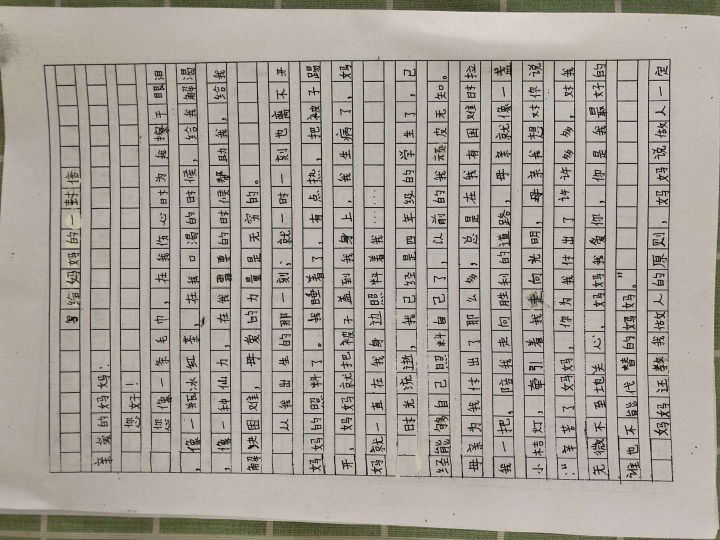 给妈妈的一封信
亲爱的妈妈:
您好!
您像一条毛巾,在我伤心时为我擦干眼泪
,像一瓶冰红茶,在我口渴的时候,给我解渴
,像一种仙力,在我需要的时候帮助我,给我
解决困难,母爱的力量是无穷的。
从我出生的那一刻;就一时一刻也离不开
妈妈的照料了。我睡着了,有点热,把被子踢
开,妈妈就把被子盖到我身上,我生病了,妈
妈就一直在我身边照料着我……
时光流逝,我已经是四年级的学生了,已
经能够自己照料自己了,以前的我顽皮无知。
母亲为我付出了那么多,总是在我有困难时拉
我一把,陪我走向胜利的道路,母亲就像一盏
小桔灯,牵引着我走向光明,母亲我想对你说
:“辛苦了妈妈,你为我付出了许许多多,对我
无微不至地关心,妈妈我爱你,你是我最好的
谁也不能代替的妈妈。”
妈妈还教我做人的原则,妈妈说做人一定